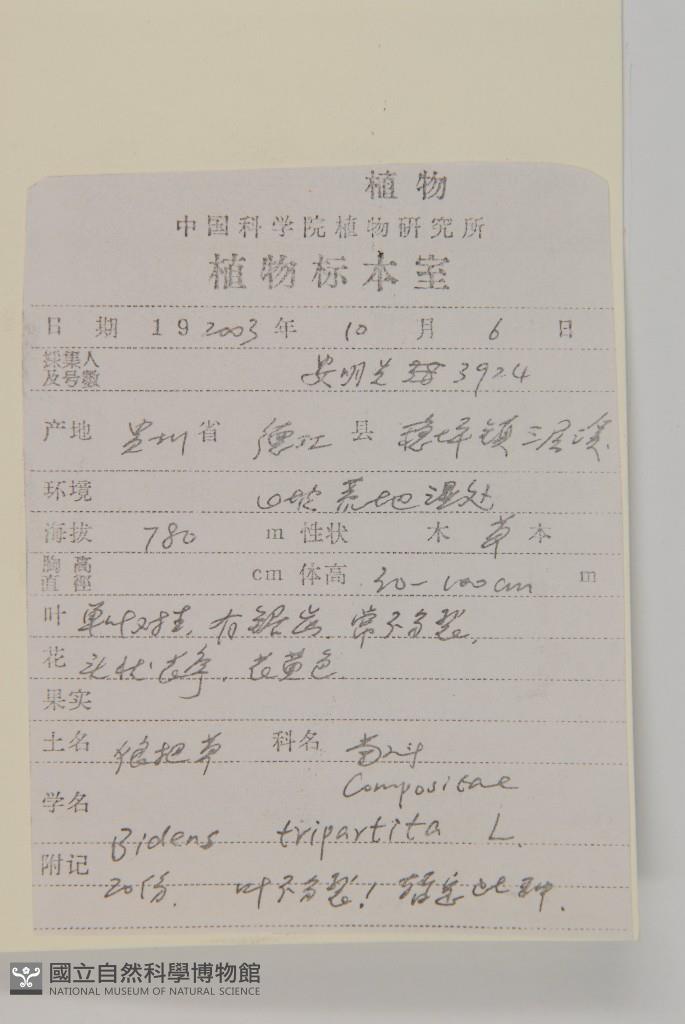 植物
中国科学院植物研究所
植物标本室
日 期 19 2003 年 10 月 6 日
採集人
及号数 安明先 3924
产地 贵州 省 德江 县 稳坪镇 三居溪
环境 山坡荒地湿处
海拔 780 m 性状 木 草 本
胸高
直徑 cm 体高 30-100cm m
叶 单叶对生,有锯齿,常不分裂,
花 头状花序,花黄色
果实
土名 狼把草 科名 菊科
Compositae
学名
Bidens tripartita L.
附记 20份. 叶不分裂!暂定此种.
國立自然科學博物館
NATIONAL MUSEUM OF NATURAL SCIENCE